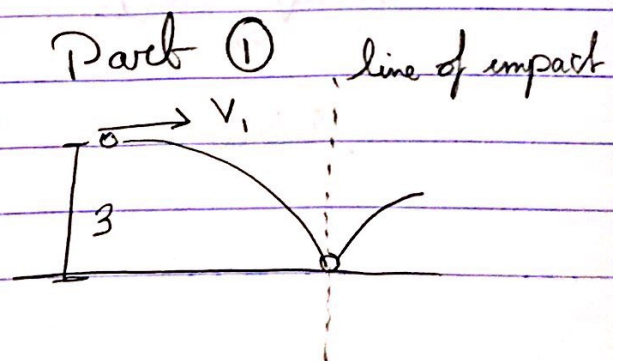 Part ①
line of impact
V₁
3